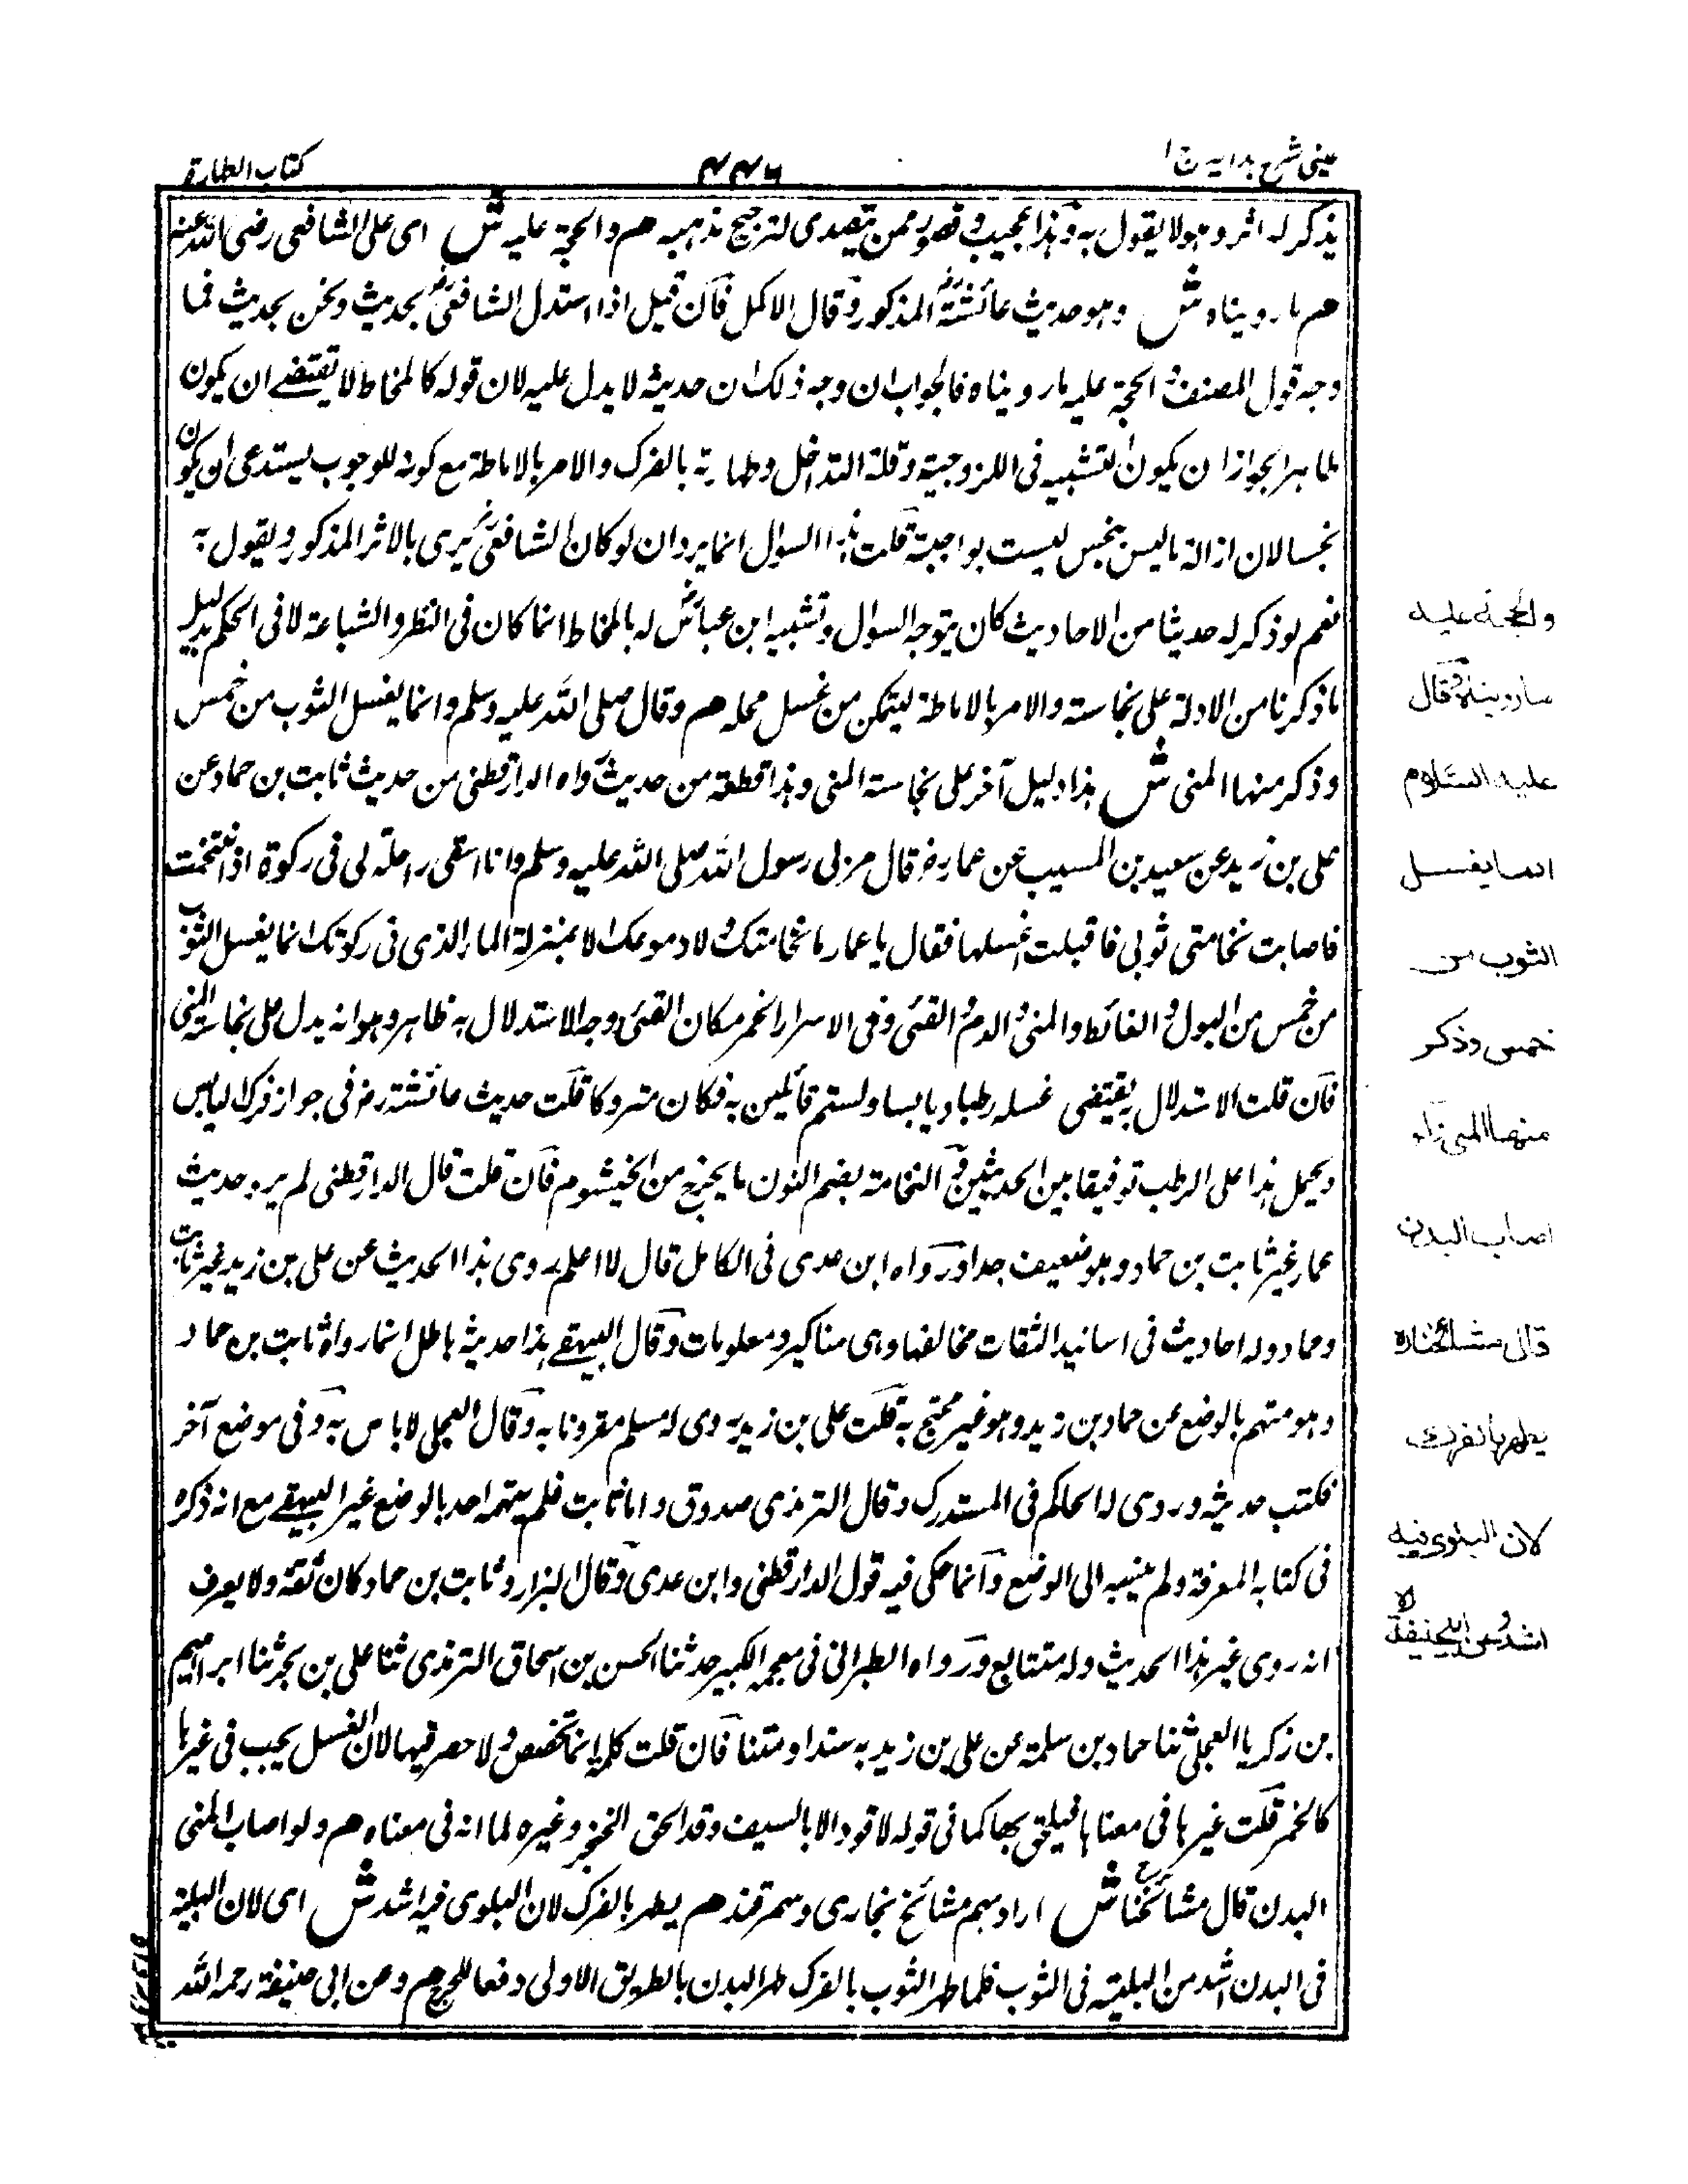 عینی شرح ہدایہ ج ا
۴۴۶
کتاب الطهارة
یذکر له اثر و هو لا یقول به و هذا عجیب و قصور ممن یتصدی لترجیح مذهبه هم و الحجة علیه ش ای علی الشافعی رضی الله عنه
هم ما رویناه ش و هو حدیث عائشة رض المذکور و قال الاکمل فان قیل اذا استدل الشافعی رح بحدیث و نحن بحدیث فما
وجه قول المصنف الحجة علیه ما رویناه فالجواب ان وجه ذلک ان حدیثه لا یدل علیه لان قوله کالمخاط لا یقتضی ان یکون
طاهرا لجواز ان یکون التشبیه فی اللزوجیة و قلة التداخل و طهارته بالفرک و الامر بالاماطة مع کونه للوجوب یستدعی ان یکون
نجسا لان ازالة ما لیس بنجس لیست بواجبة قلت هذا السوال انما یرد ان لو کان الشافعی رح یری بالاثر المذکور و یقول به
نعم لو ذکر له حدیثا من الاحادیث کان یتوجه السوال و تشبیه ابن عباس رض له بالمخاط انما کان فی النظر و الشباعة لا فی الحکم بدلیل
ما ذکرنا من الادلة علی نجاسته و الامر بالاماطة لیتمکن من غسل محله هم و قال صلی الله علیه و سلم و انما یغسل الثوب من خمس
و ذکر منها المنی ش هذا دلیل آخر علی نجاسة المنی و هذا قطعة من حدیث رواه الدارقطنی من حدیث ثابت بن حماد عن
علی بن زید عن سعید بن المسیب عن عمار رض قال مر بی رسول الله صلی الله علیه و سلم و انا اسقی راحلة لی فی رکوة اذ انتخمت
فاصابت نخامتی ثوبی فاقبلت اغسلها فقال یا عمار ما نخامتک و لا دموعک الا بمنزلة الماء الذی فی رکوتک انما یغسل الثوب
من خمس من البول و الغائط و المنی و الدم و القئی و فی الاسرار الخمر مکان القئی وجه الاستدلال به ظاهر و هو انه یدل علی نجاسة المنی
فان قلت الاستدلال به یقتضی غسله رطبا و یابسا و لستم قائلین به فکان متروکا قلت حدیث عائشة رض فی جواز فرک الیابس
و یحمل هذا علی الرطب توفیقا بین الحدیثین و النخامة بضم النون ما یخرج من الخیشوم فان قلت قال الدارقطنی لم یرو حدیث
عمار غیر ثابت بن حماد و هو ضعیف جدا و رواه ابن عدی فی الکامل قال لا اعلم روی هذا الحدیث عن علی بن زید غیر ثابت
و حماد و له احادیث فی اسانید الثقات مخالفها و هی مناکیر و معلومات و قال البیهقے هذا حدیث باطل انما رواه ثابت بن حماد
و هو متهم بالوضع عن حماد بن زید و هو غیر محتج به قلت علی بن زید روی له مسلم مقرونا به و قال العجلی لا باس به و فی موضع آخر
فکتب حدیثه و روی له الحاکم فی المستدرک و قال الترمذی صدوق و اما ثابت فلم یتهمه احد بالوضع غیر البیهقے مع انه ذکره
فی کتابه المعرفة و لم ینسبه الی الوضع و انما حکی فیه قول الدارقطنی و ابن عدی و قال البزار و ثابت بن حماد کان ثقة و لا یعرف
انه روی غیر هذا الحدیث و له متتابع و رواه الطبرانی فی معجمه الکبیر حدثنا الحسن بن اسحاق الترمذی ثنا علی بن بحر ثنا ابراهیم
بن زکریا العجلی ثنا حماد بن سلمة عن علی بن زید به سندا و متنا فان قلت کلمة انما تخصص و لا حصر فیها لان الغسل یجب فی غیرها
کالخمر قلت غیرها فی معناها فیلحق بها کما فی قوله لا قود الا بالسیف و قد الحق الخنجر و غیره لما انه فی معناه هم و لو اصاب المنی
البدن قال مشائخنا رح ش اراد بهم مشائخ بخاری و سمرقند هم یطهر بالفرک لان البلوی فیه اشد ش ای لان البلیة
فی البدن اشد من البلیة فی الثوب فلما طهر الثوب بالفرک طهر البدن بالطریق الاولی دفعا للحرج هم و عن ابی حنیفة رحمه الله
والحجة علیه
ما رویناه وقال
علیه السلام
انما یغسل
الثوب من
خمس وذکر
منها المنی ولو
اصاب البدن
قال مشائخنا رح
یطهر بالفرک
لان البلوی فیه
اشد وعن ابی حنیفة